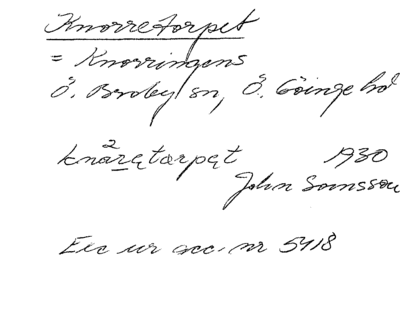 Knorretorpet
= Knorringens
Ö. Broby sn, Ö. Göinge hd
2
knarętarpęt 1930
John Sonesson
Exc ur acc. nr 5418